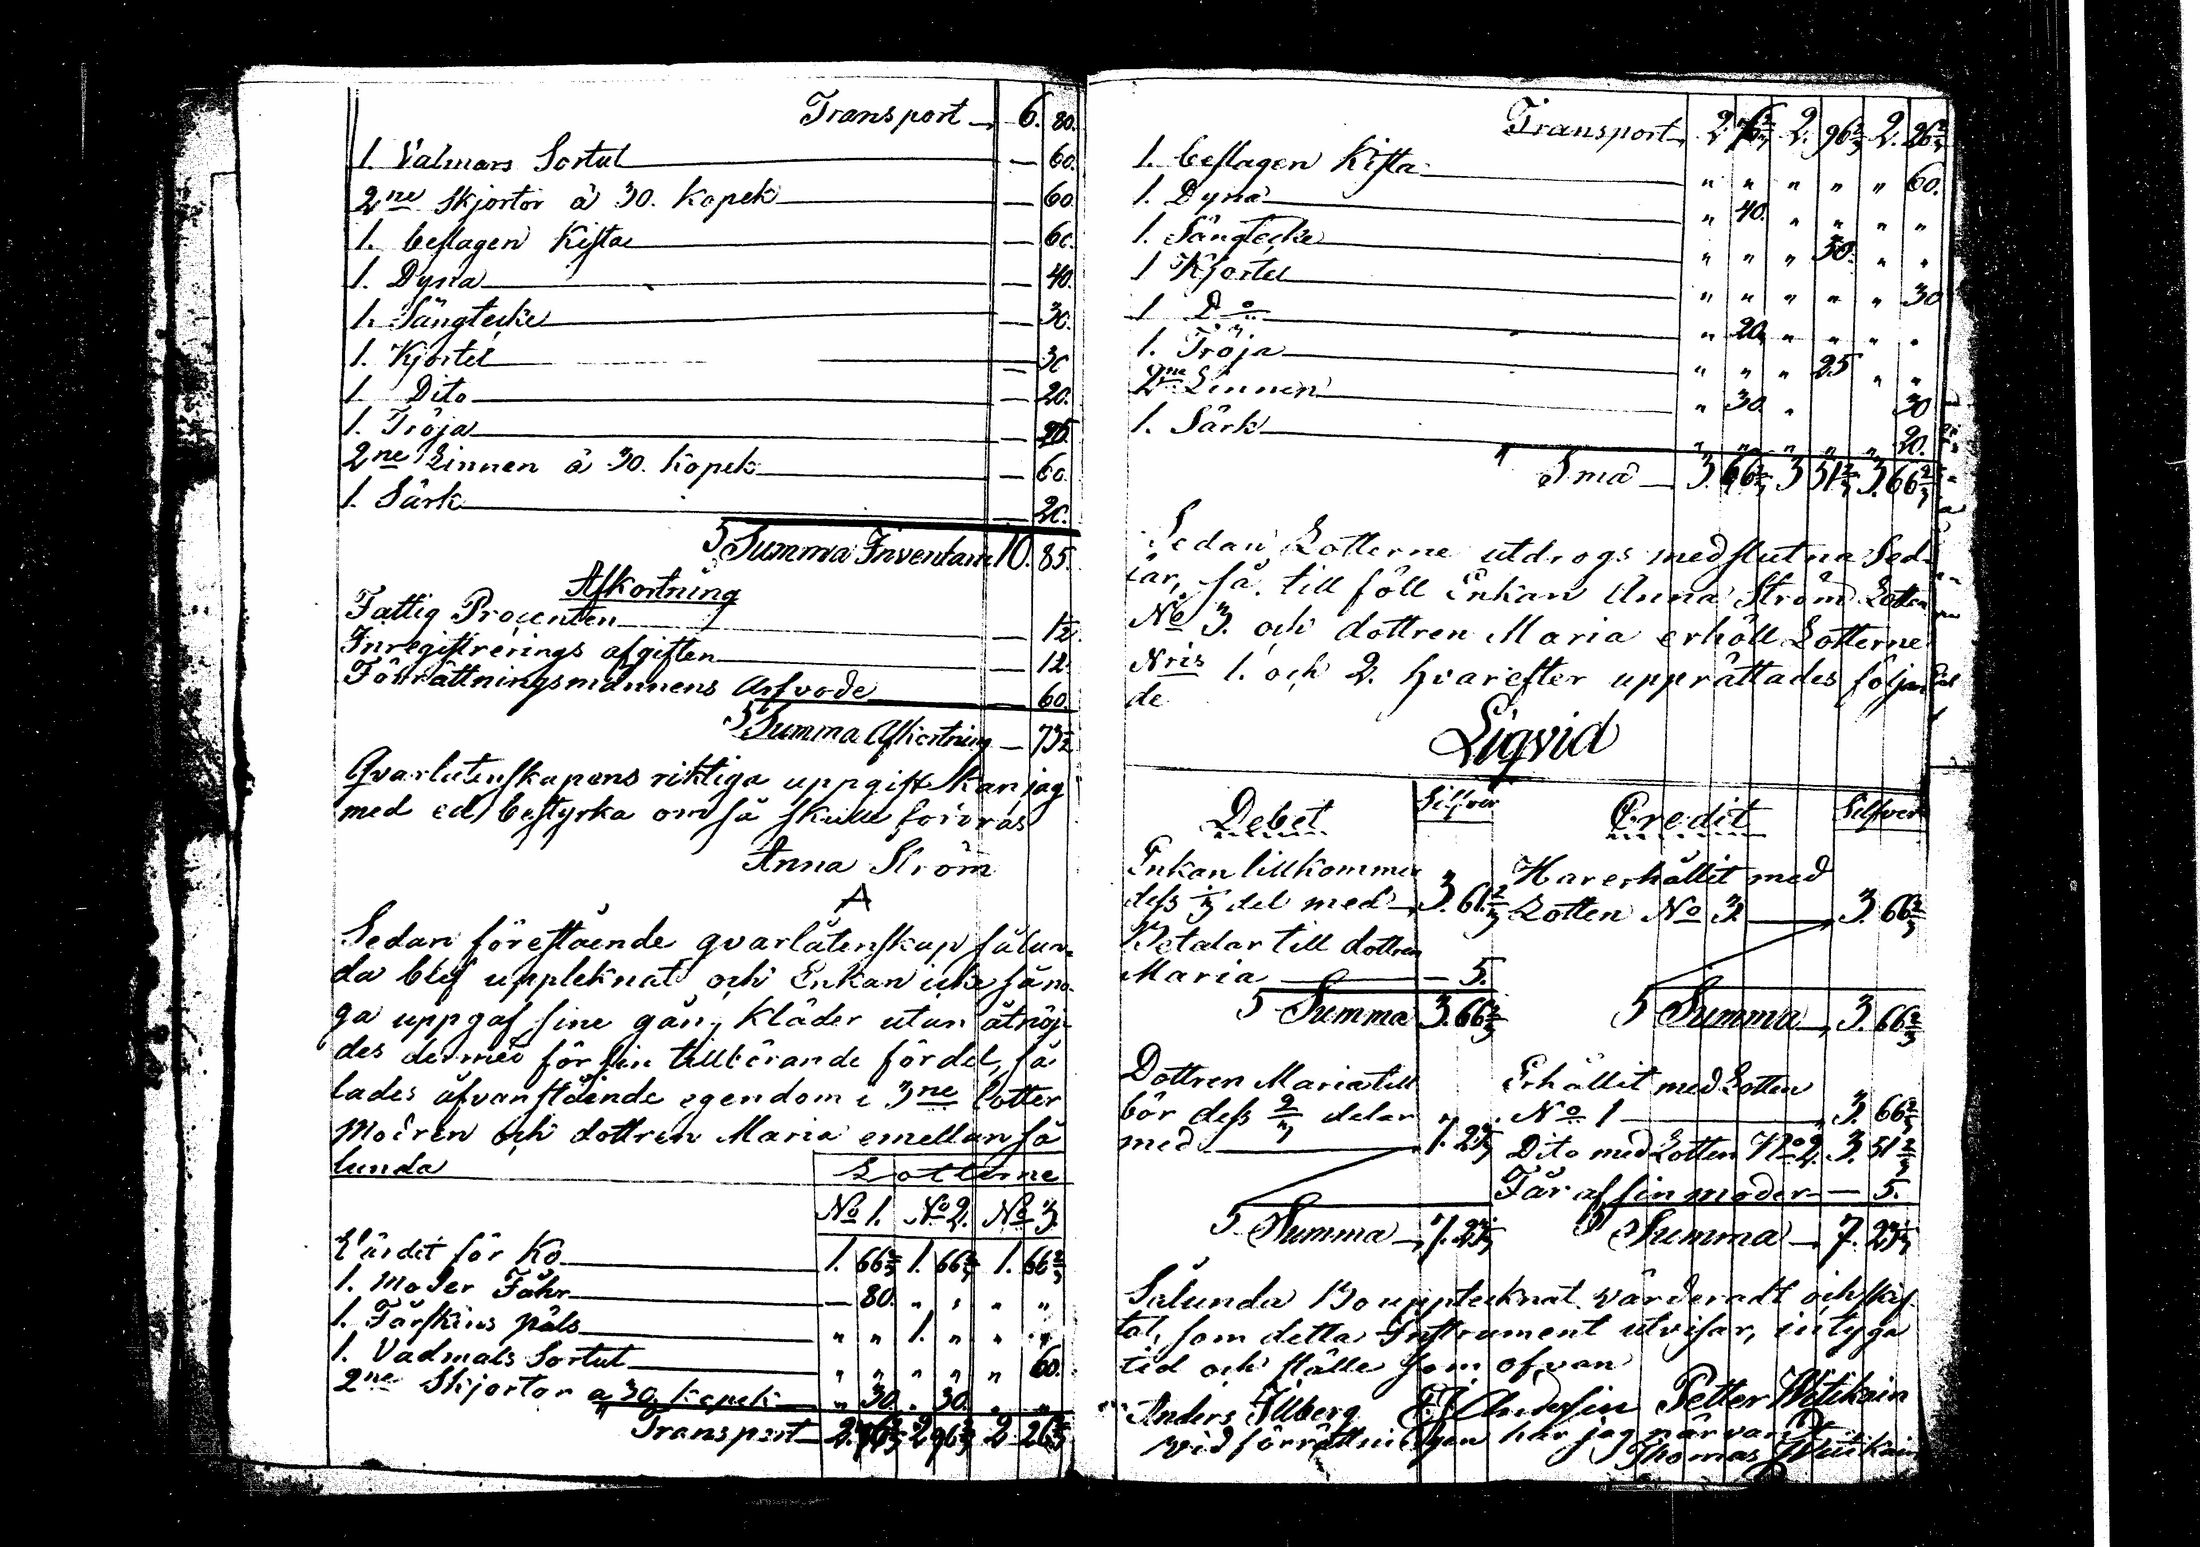 Transport — 6. 80.
1. Valmars Sortut — 60.
2ne Skjortor à 30. Kopek — 60.
1. beslagen Kista — 60.
1. Dyna — 40.
1. Sängtecke — 30.
1. Kjortel — 30
1 Dito — 20.
1. Tröja — 25.
2ne Linnen à 30. Kopek — 60.
1. Särk — 20.
Summa Inventarii 10. 85.
Afkortning
Fattig Procenten — 1½
Inregistrerings afgiften — 12.
Förrättningsmannens Arfvode — 60.
Summa Afkortning — 73½
Qvarlåtenskapens riktiga uppgift kan jag
med ed bestyrka om så skulle fordras
Anna Ström
A
Sedan förestående qvarlåtenskap sålun-
da blef uppteknat och Enkan icke sär
ga uppgaf sine gång kläder utan åtnöj-
des dermed för sin tillbörande fördel, så
lades ofvanstående egendom i 3ne Lotter
Modren och dottren Maria emellan så
lunda Lotterne
No 1. No 2. No 3.
Värdet för Ko — 1. 66⅔ 1. 66⅔ 1. 66⅔
1. Moder Fåhr — 80. " " " "
1. Fårskins päls " " 1. " " "
1. Vadmals Sortut " " " " " 60.
2ne Skjortor a 30 kopek " 30. " 30. " "
Transport 2. 76⅔ 2 96⅔ 2 26⅔
Transport 2. 76⅔ 2. 96⅔ 2. 26⅔
1. beslagen Kista " " " " " 60.
1. Dyna " 40. " " " "
1. Sängtecke " " " 30. " "
1 Kjortel " " " " " 30
1 Do " 20 " " " "
1. Tröja " " " 25 " "
2ne Linnen " 30 " 30
1. Särk " " " " " 20.
Sma 3 66⅔ 3 51⅔ 3. 66⅔
Sedan Lotterne utdrogs med slutna Sed-
lar, så till föll Enkan Anna Ström Lotten
No 3. och dottren Maria erhöll Lotterne
Nris 1. och 2. hvarefter upprättades följan
de
Liqvid
Debet Silfver Credit Silfver
Enkan tillkommer
dess ⅓ del med 3. 61⅔
Betalar till dottren
Maria — 5.
Summa 3. 66⅔
Har erhållit med
Lotten No 3. — 3. 66⅔
Summa 3. 66⅔
Dottren Maria till
bör dess ⅔ delar
med 7. 23⅓
Summa 7. 23⅓
Erhållit med Lotten
No 1 — 3. 66⅔
Dito med Lotten No 2. 3. 51⅔
Får af sin moder — 5.
Summa 7. 23⅓
Sålunda vo upptecknat värderadt och skif-
tat, som detta Instrument utvisar, intyga
tid och ställe som ofvan
Anders Illberg Petter Witikain
vid förrättningen har jag närvarit
Thomas Witikain